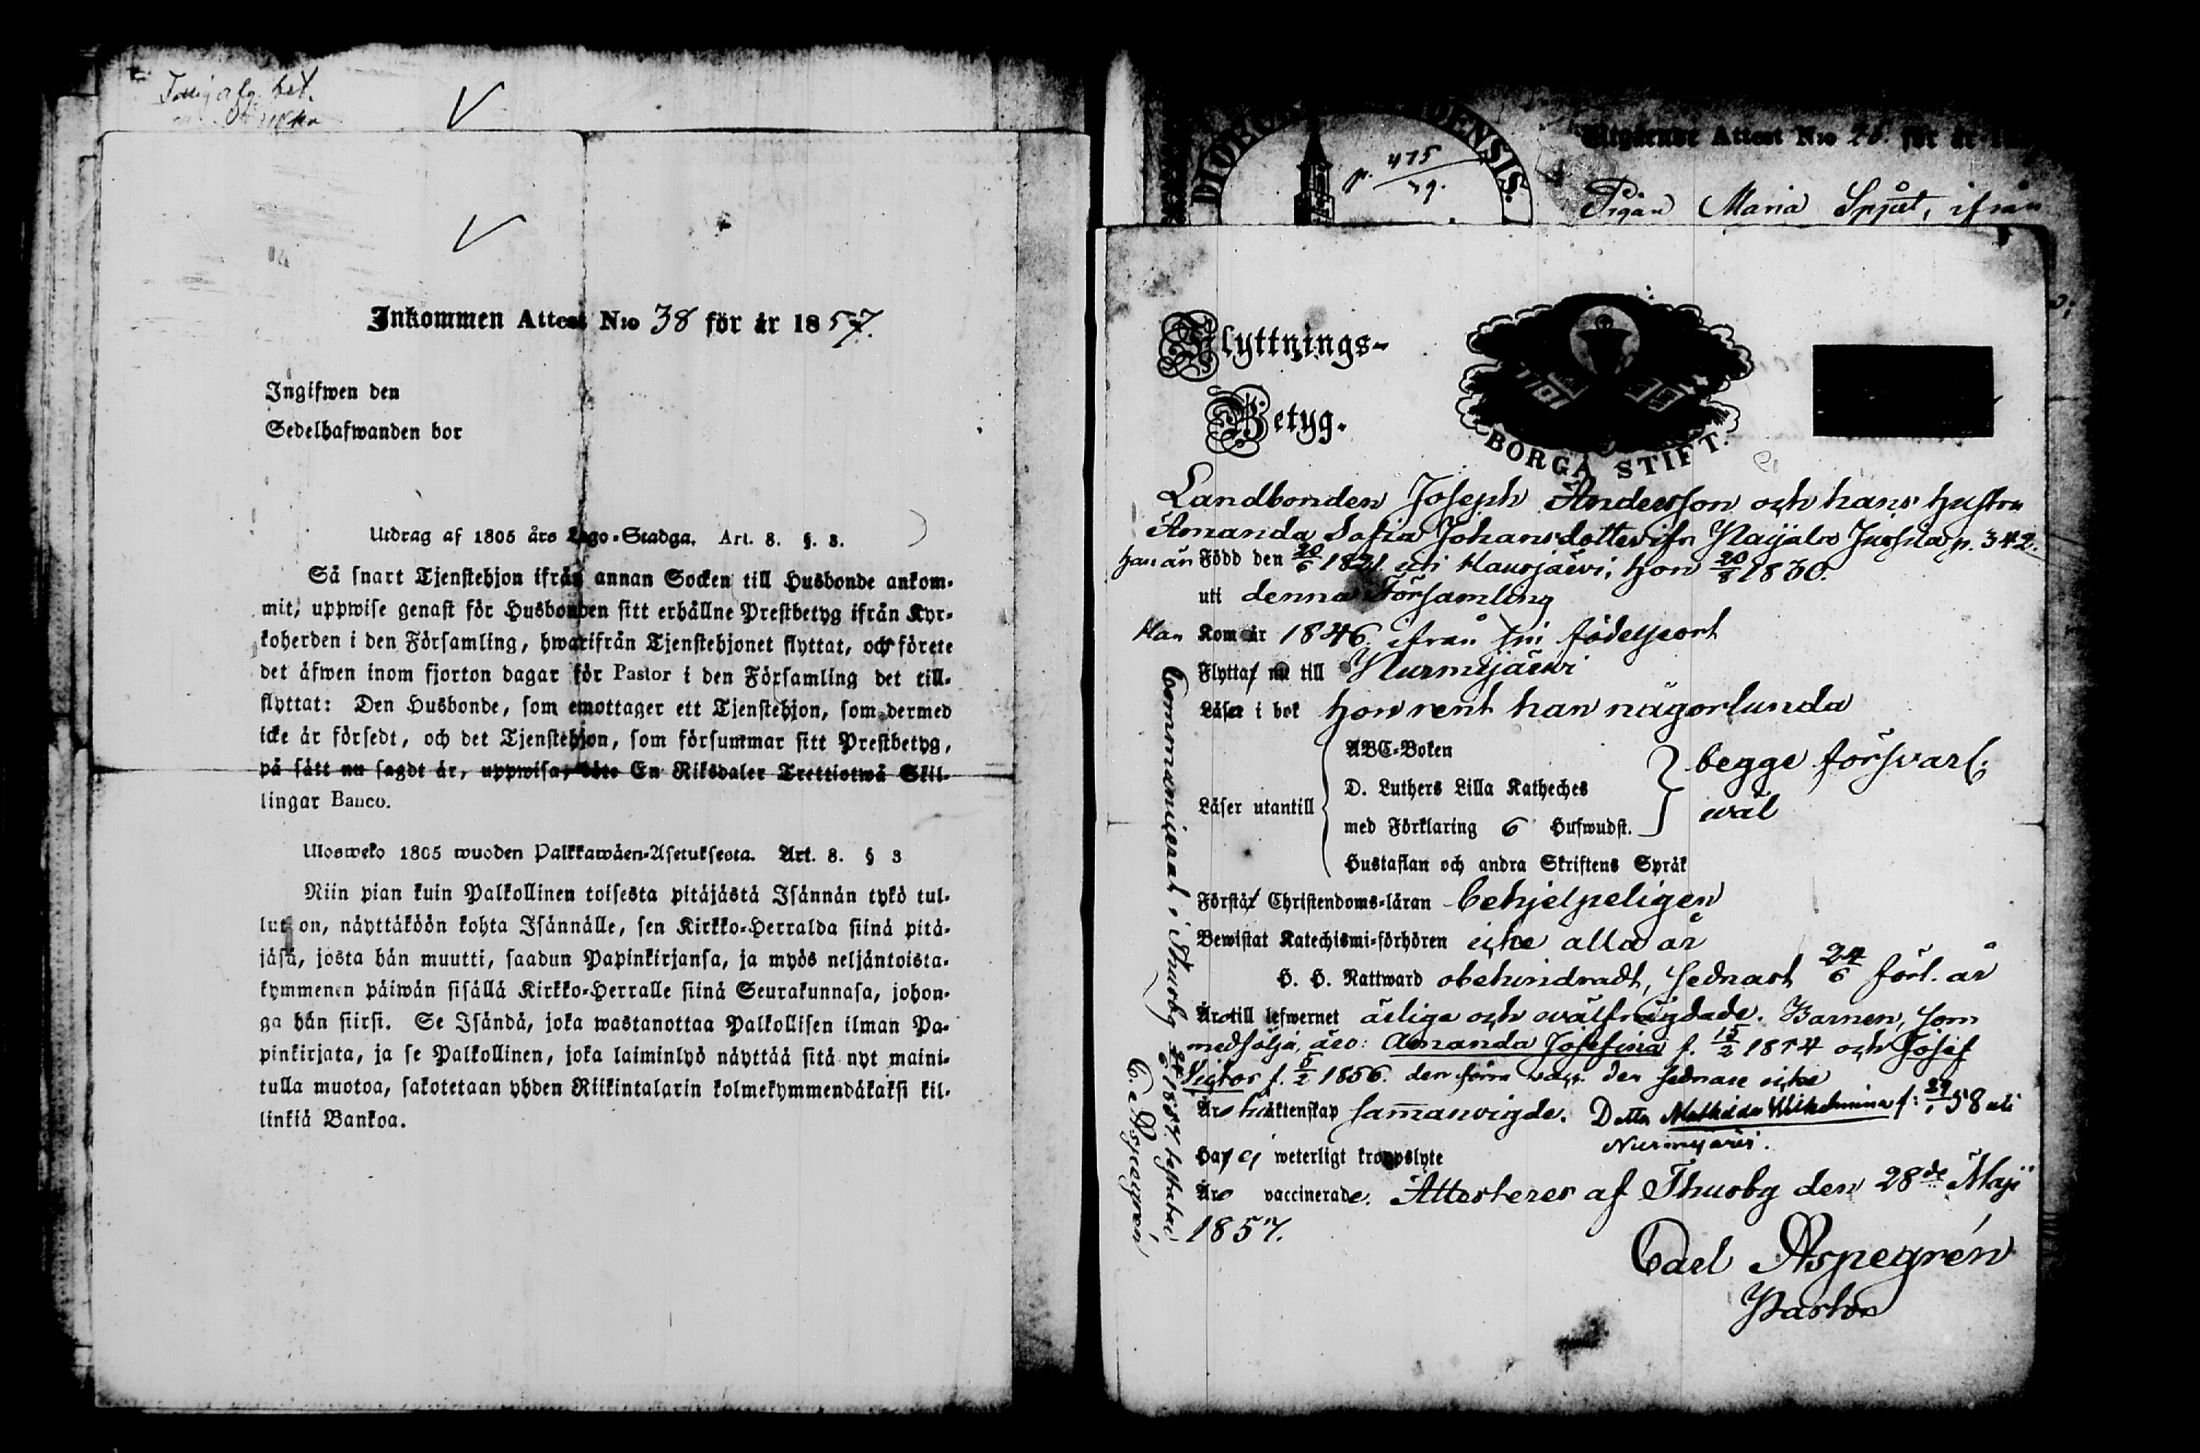 Inkommen Attest N:o 38 för år 1857.
Ingifwen den
Sedelhafwanden bor
Utdrag af 1805 års Lego-Stadga. Art. 8. §. 3.
Så snart Tjenstehjon ifrån annan Socken till Husbonde ankom-
mit, uppwise genast för Husbonden sitt erhållne Prestbetyg ifrån Kyr-
koherden i den Församling, hwarifrån Tjenstehjonet flyttat, och förete
det äfwen inom fjorton dagar för Pastor i den Församling det till-
flyttat: Den Husbonde, som emottager ett Tjenstehjon, som dermed
icke är försedt, och det Tjenstehjon, som försummar sitt Prestbetyg,
på sätt nu sagdt är, uppwisa, böte En Riksdaler Trettiotwå Skil-
lingar Banco.
Ulosweto 1805 wuoden Palkkawäen-Asetuksesta. Art. 8. § 3
Niin pian kuin Palkollinen toisesta pitäjästä Isännän tykö tul-
lut on, näyttäköön kohta Isännälle, sen Kirkko-Herralda siinä pitä-
jäsä, josta hän muutti, saadun Papinkirjansa, ja myös neljäntoista-
kymmenen päiwän sisällä Kirkko-Herralle siinä Seurakunnasa, johon-
ga hän siirsi. Se Isändä, joka wastanottaa Palkollisen ilman Pa-
pinkirjata, ja se Palkollinen, joka laiminlyö näyttää sitä nyt maini-
tulla muotoa, sakotetaan yhden Riikintalarin kolmekymmendäkaksi kil-
linkiä Bankoa.
p. 475
Utgående Attest N:o för år
Pigan Maria Spjut, ifrån
Flyttnings-
Betyg.
BORGÅ STIFT.
Landbonden Joseph Andersson och hans hustru
Amanda Sofia Johansdotter ifr Jussila p. 342.
han än Född den 20/6 1821 uti Mausjärvi, hon 20/8 1830.
uti denna Församling
Han Kom år 1846 ifrån sin födelseort
Flytta nu till Nurmijärvi
Läser i bok hon rent han någorlunda
ABC-Boken
D. Luthers Lilla Katheches
Läser utantill med Förklaring 6 Hufwudst.
begge försvarl:
wäl
Hustaflan och andra Skriftens Språk
Förstå Christendoms-läran behjelpeligen
Bewistat Katechismi-förhören icke alla år
H. H. Nattward obehindradt, sednast 24/6 förl. år
Äro till lefwernet ärliga och wälfrägdade. Barnen, som
medfölja, äro: Amanda Josefina f. 15/2 1854 och Josef
Victor f. 6/2 1856. den förra vacc. den sednare icke
Äro i äktenskap sammanvigde. Dottr Mathilda Wilhelmina f: 29/1 58 uti
Nurmijärvi.
Ha ej weterligt kroppslyte
Äro vaccinerade. Attesteres af Thusby den 28de Maji
1857.
Carl Aspegrén
Pastor
Communicerat i Thusby 24/6 1857 bestrker
C. Aspegrén